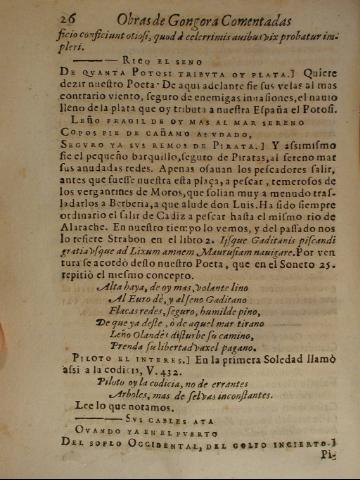 26 Obras de Gongora Comentadas
ficio conficiunt otiosi, quod à celerrimis auibus vix probatur im-
pleri.
RICO EL SENO
DE QVANTA POTOSI TRIBVTA OY PLATA.] Quiere
dezir nuestro Poeta: De aqui adelante fie sus velas al mas
contrario viento, seguro de enemigas inuasiones, el nauto
lleno de la plata que oy tributa a nuestra España el Potosi.
LEÑO FRAGIL DE OY MAS AL MAR SERENO
COPOS FIE DE CAÑAMO AÑVDADO,
SEGVRO YA SVS REMOS DE PIRATA.] Y assimismo
fie el pequeño barquillo, seguro de Piratas, al sereno mar
sus anudadas redes. Apenas osauan los pescadores salir,
antes que fuesse nuestra esta plaça, a pescar, temerosos de
los vergantines de Moros, que solian muy a menudo tras-
ladarlos a Berberia, a que alude don Luis. Ha sido siempre
ordinario el salir de Cadiz a pescar hasta el mismo rio de
Alarache. En nuestro tiempo lo vemos, y del passado nos
lo refiere Strabon en el libro 2. Iisque Gaditanis piscandi
gratia vsque ad Lixum amnem, Maurusiam nauigare. Por ven
tura se acordò desto nuestro Poeta, que en el Soneto 25.
repitiò el mesmo concepto.
Alta haya, de oy mas, volante lino
Al Euro dè, y al seno Gaditano
Flacas redes, seguro, humilde pino,
De que ya deste, ò de aquel mar tirano
Leño Olandès disturbe su camino,
Prenda su libertad vaxel pagano.
PILOTO EL INTERES.] En la primera Soledad llamò
assi a la codicia, V. 432.
Piloto oy la codicia, no de errantes
Arboles, mas de seluas inconstantes.
Lee lo que notamos.
SVS CABLES ATA
QVANDO YA EN EL PVERTO
DEL SOPLO OCCIDENTAL, DEL GOLFO INCIERTO.]
Pi-